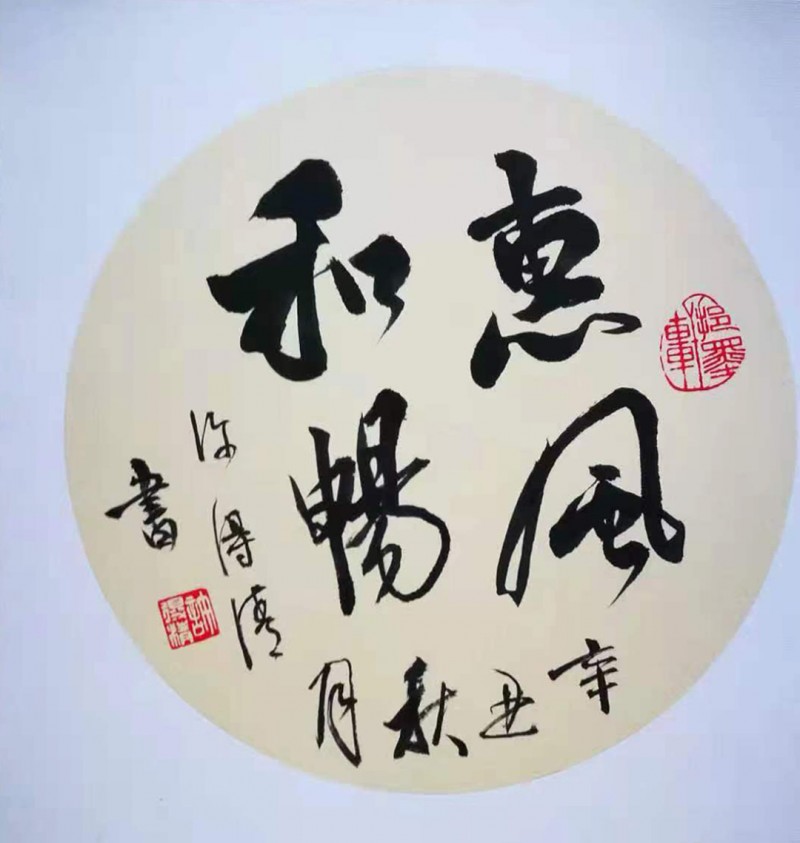 惠風
和暢
辛丑秋月
许得
書